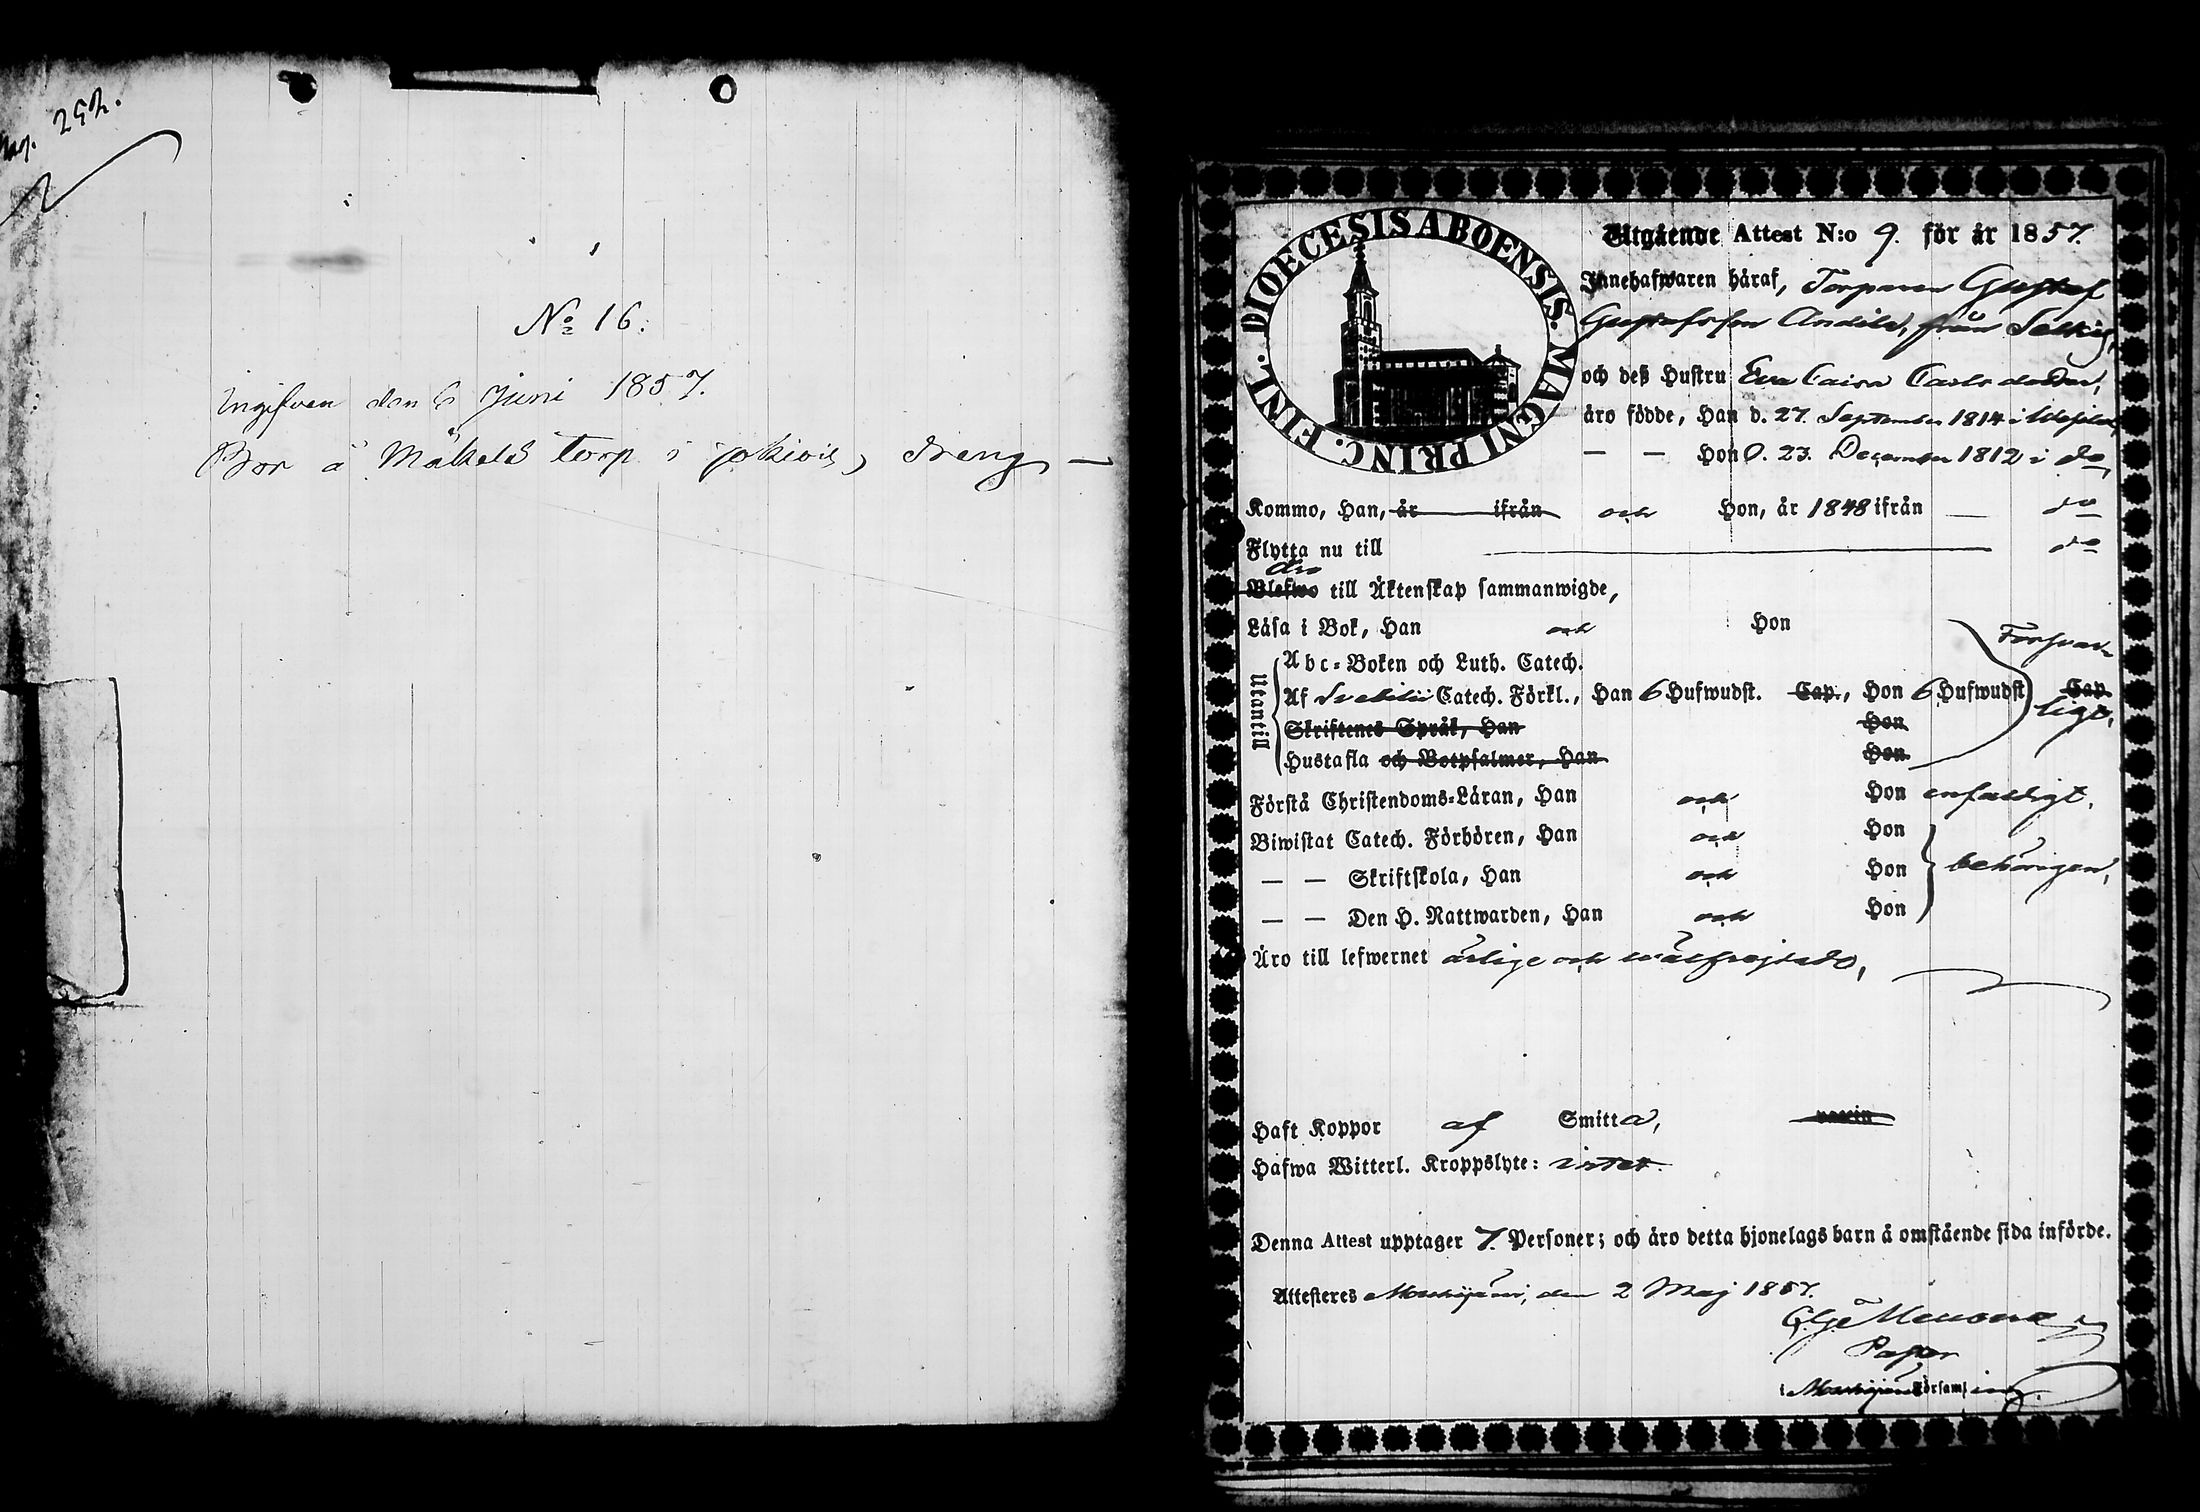 pag. 252.
No 16.
Ingifven den 6 Juni 1857.
Bor å Mäkelä torp i Jokiois, dreng —
DIOECESIS ABOENSIS. MAGNI PRINC. FINL.
Utgående Attest N:o 9. för år 1857.
Innehafwaren häraf, Torparen Gustaf
Gustafsson Andilä, från
och deß Hustru Eva Caisa Carlsdotter,
äro födde, Han d. 27. September 1814 i
— — Hon d. 23. December 1812 i do,
Kommo, Han, år ifrån och Hon, år 1848 ifrån — do
Flytta nu till — do
äro
Blefwo till Äktenskap sammanwigde,
Läsa i Bok, Han och Hon
Försvar-
Utantill
Abc-Boken och Luth. Catech.
Af Svebilii Catech. Förkl., Han 6 Hufwudst. Cap., Hon 6 Hufwudst Cap
ligt,
Skriftenes Språk, Han Hon
Hustafla och Botpsalmer, Han Hon
Förstå Christendoms-Läran, Han och Hon enfaldigt,
Biwistat Catech. Förhören, Han och Hon
— — Skriftskola, Han och Hon behörigen,
— — Den H. Nattwarden, Han och Hon
Äro till lefwernet ärlige och wälfrejdade,
Haft Koppor af Smitta, vaccin
Hafwa Witterl. Kroppslyte: intet.
Denna Attest upptager 7. Personer; och äro detta hjonelags barn å omstående sida införde.
Attesteres Mouhijärvi, den 2 Maj 1857.
Pastor
i Mouhijärvi Församling.